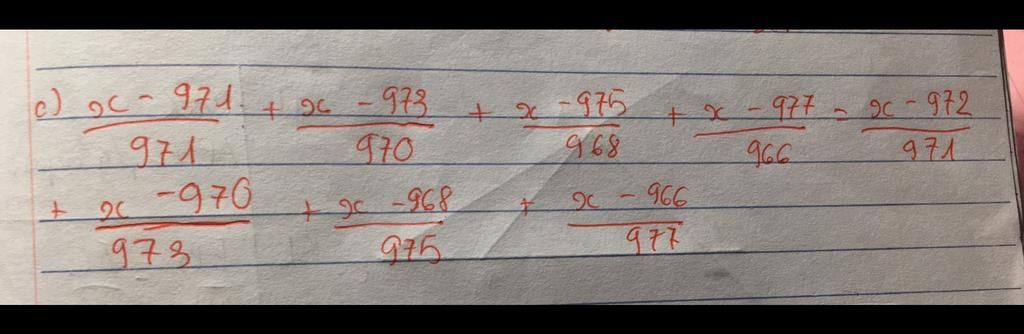 c) \frac{x - 971}{971} + \frac{x - 973}{970} + \frac{x - 975}{968} + \frac{x - 977}{966} = \frac{x - 972}{971}
+ \frac{x - 970}{973} + \frac{x - 968}{975} + \frac{x - 966}{977}